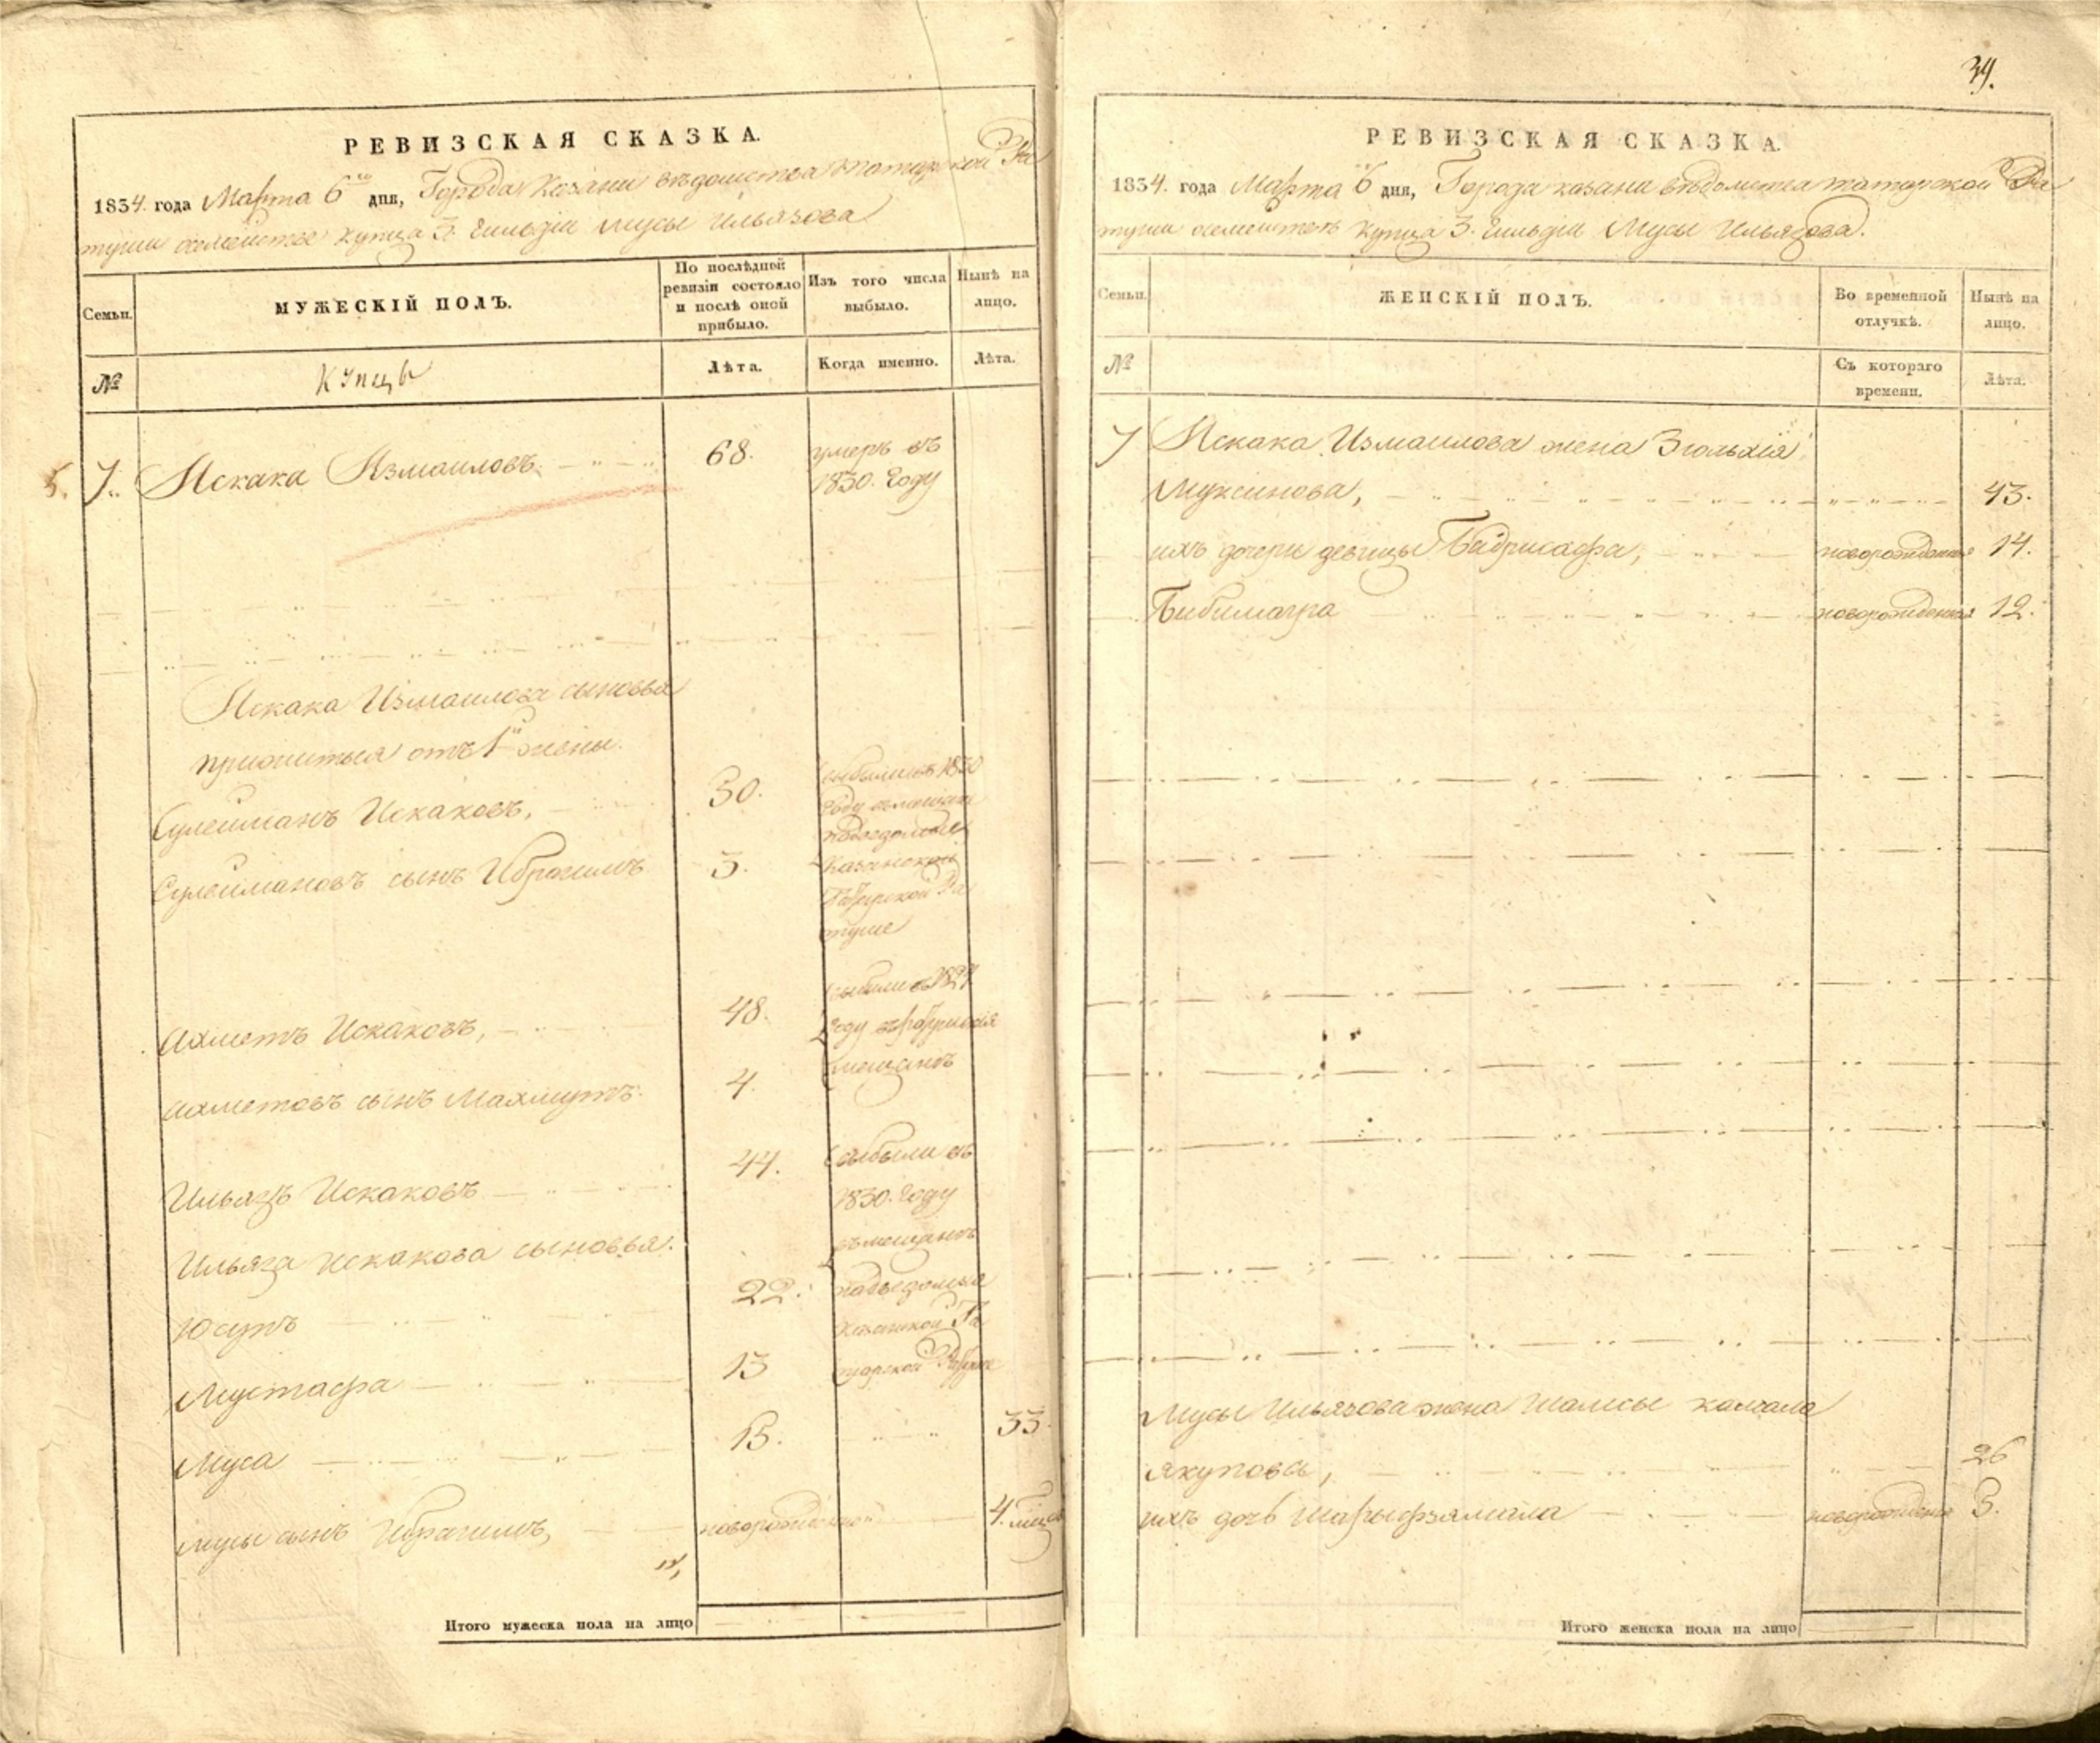 РЕВИЗСКАЯ СКАЗКА.
1834. года Марта 6го дня, Города Казани вѣдомства татарской Ра
туши семействе купца 3. Гильдіи Мусы Ильязова
Семьи.
МУЖЕСКІЙ ПОЛЪ.
По послѣдней
ревизіи состояло
и послѣ оной
прибыло.
Изъ того числа
выбыло.
Нынѣ на
лицо.
№
купцы
Лѣта.
Когда именно.
Лѣта.
5. 7. Искака Измаиловъ. 68. умеръ въ
1830. Году
Искака Измаилова сыновья
прижитыя отъ 1й жены.
Сулейманъ Искаковъ, 30. выбыли въ 1830
Году въ мещане
Сулеймановъ сынъ Ибрагимъ 3. Казанской
Татарской Ра
туше
Ахметъ Искаковъ, 48.
Году
Ахметовъ сынъ Махмутъ. 4.
Ильязъ Искаковъ 44. выбыли въ
1830. Году
Ильяза Искакова сыновья. въ мещане
Юсупъ 22. Казанской Та
Мустафа 13 тарской
Муса 15. 33.
Мусы сынъ Ибрагимъ, новорожденной 4.
Итого мужеска пола на лицо
39.
РЕВИЗСКАЯ СКАЗКА.
1834. года Марта 6 дня, Города казани вѣдомства татарской Ра
туши купца 3. Гильдіи Мусы Ильязова.
Семьи.
ЖЕНСКІЙ ПОЛЪ.
Во временной
отлучкѣ.
Нынѣ на
лицо.
№
Съ котораго
времени.
Лѣта.
7 Искака Измаилова жена Зюльхія
Муксинова, 43.
ихъ дочери девицы Бадрисафа, новорожденная 14.
Бибимагра новорожденная 12.
Мусы Ильязова жена
Якупова, 26
ихъ дочь Шарыфзямала новорожденная 3.
Итого женска пола на лицо